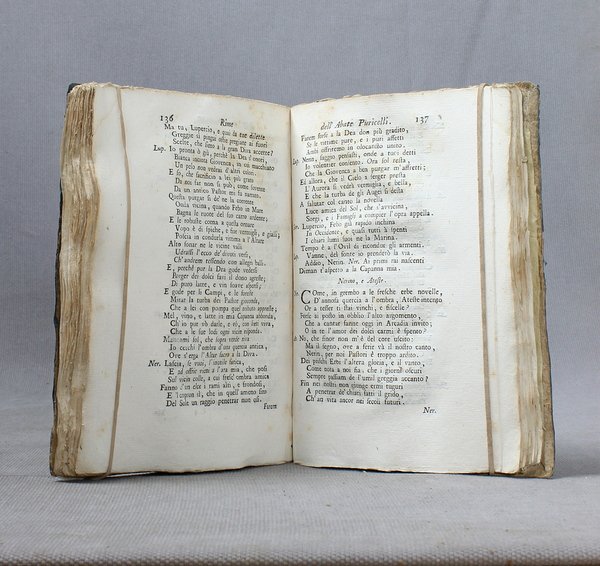 136 Rime
Ma tu, Lupercio, e qui la tue dilette
Greggie si pingui oste pregiate ai fuori
Scelte, che sieno a la gran Dia accette?
Lup. Io pronta ò già, perchè la Dea s'onori,
Bianca incinta Giovenca, in cui macchiato
Un pelo non vedrai d'altri colori
E so, che sacrificio a lei più grato
Da noi far non si può, come sovente
Da un antico Pastor me fu narrato.
Questa purgar si de' ne la corrente
Onda vicina, quando Febo in Mare
Bagna le ruote del suo carro ardente.
E le robuste corna a queste ornare
Vopo è di spiche, e bei vermigli, e gialli;
Poscia in condotta venera a l'Altare
Alto sonar ne le vicine valli
Udrassi l'ecco de' divoti versi,
Ch'andrem tessendo con allegri balli.
E, perchè pur la Dea gode vedersi
Porger dei dolci farri il dono agreste,
Di puro latte, e vin soavi aspersi;
E gode per li Campi, e le foreste
Mirar la turba dei Pastor gioconda,
Che a lei con pompa quel tributo appreste;
Mel, vino, e latte in mia Capana abbonda,
Ch'io pur vò darle, e rò, con liete viva,
Che a le sue lodi ogn' uscio risponda.
Mattonami sol, che sopra verde riva
Io cerchi all'ombra d'una quercia antica,
Ove s'erga l'Altar sacro a la Diva.
Ner. Lascia, se vuoi, l'inutile fatica,
E ad offrir vieni a l'ara mia, che posi
Sul vicin colle, a cui fresc' ombra amica
Fanno l'irti elce i rami alti, e frondosi,
E l'orpian il, che in quell' ameno sito
Del Sole un raggio penetrar non osi.
Furom
dell' Abate Puricelli. 137
Furem forse a la Dea don più gradito,
Se le vittime pure, e i puri affetti
Ambi offriremo in olocausto unito.
Lup. Nerin, saggio pensasti, onde a tuoi detti
Io volentier consento. Ora sol resta,
Che la Giovenca a ben purgar m'affretti;
Ed allora, che il Cielo a serger presta
L'Aurora si vedrà vermiglia, e bella,
E che la turba de gli Augei si desta
A salutar col canto la novella
Luce amica del Sol, che s'avvicina,
Sorgi, e i Famigli a compier l'opra appella.
Ner. Lupercio, Febo già rapido inchina
In Occidente, e quasi tutti à spenti
I chiari lumi suoi ne la Marina.
Tempo è a l'Ovil di ricondur gli armenti.
Lup. Vanne, del fonte io prenderò la via.
Addio, Nerin. Ner. Ai primi rai nascenti
Diman t'aspetto a la Capanna mia.
Nerino, e Ateste.
COme, in grembo a le fresche erbe novelle,
D'annosa quercia a l'ombra, Ateste intento
Or a tesser ti stai vinchi, e fiscelle?
Forse ài posto in obblio l'alto argomento,
Che a cantar fanne oggi in Arcadia invito;
O in te l'amor dei dolci carmi è spento?
No, che finor non m'è del core uscito:
Ma il segno, ove a ferir và il nostro canto,
Nerin, per noi Pastori è troppo ardito.
Dei prischi Erbi l'altera gloria, e il vanto,
Come nota a noi fia, che i giorni oscuri
Sempre passiam de l'umil greggia accanto?
Fin nei nostri non giunge ermi tuguri
A penetrar de' chiari fatti il grido,
Ch'an vita ancor nei secoli futuri.
Ner.